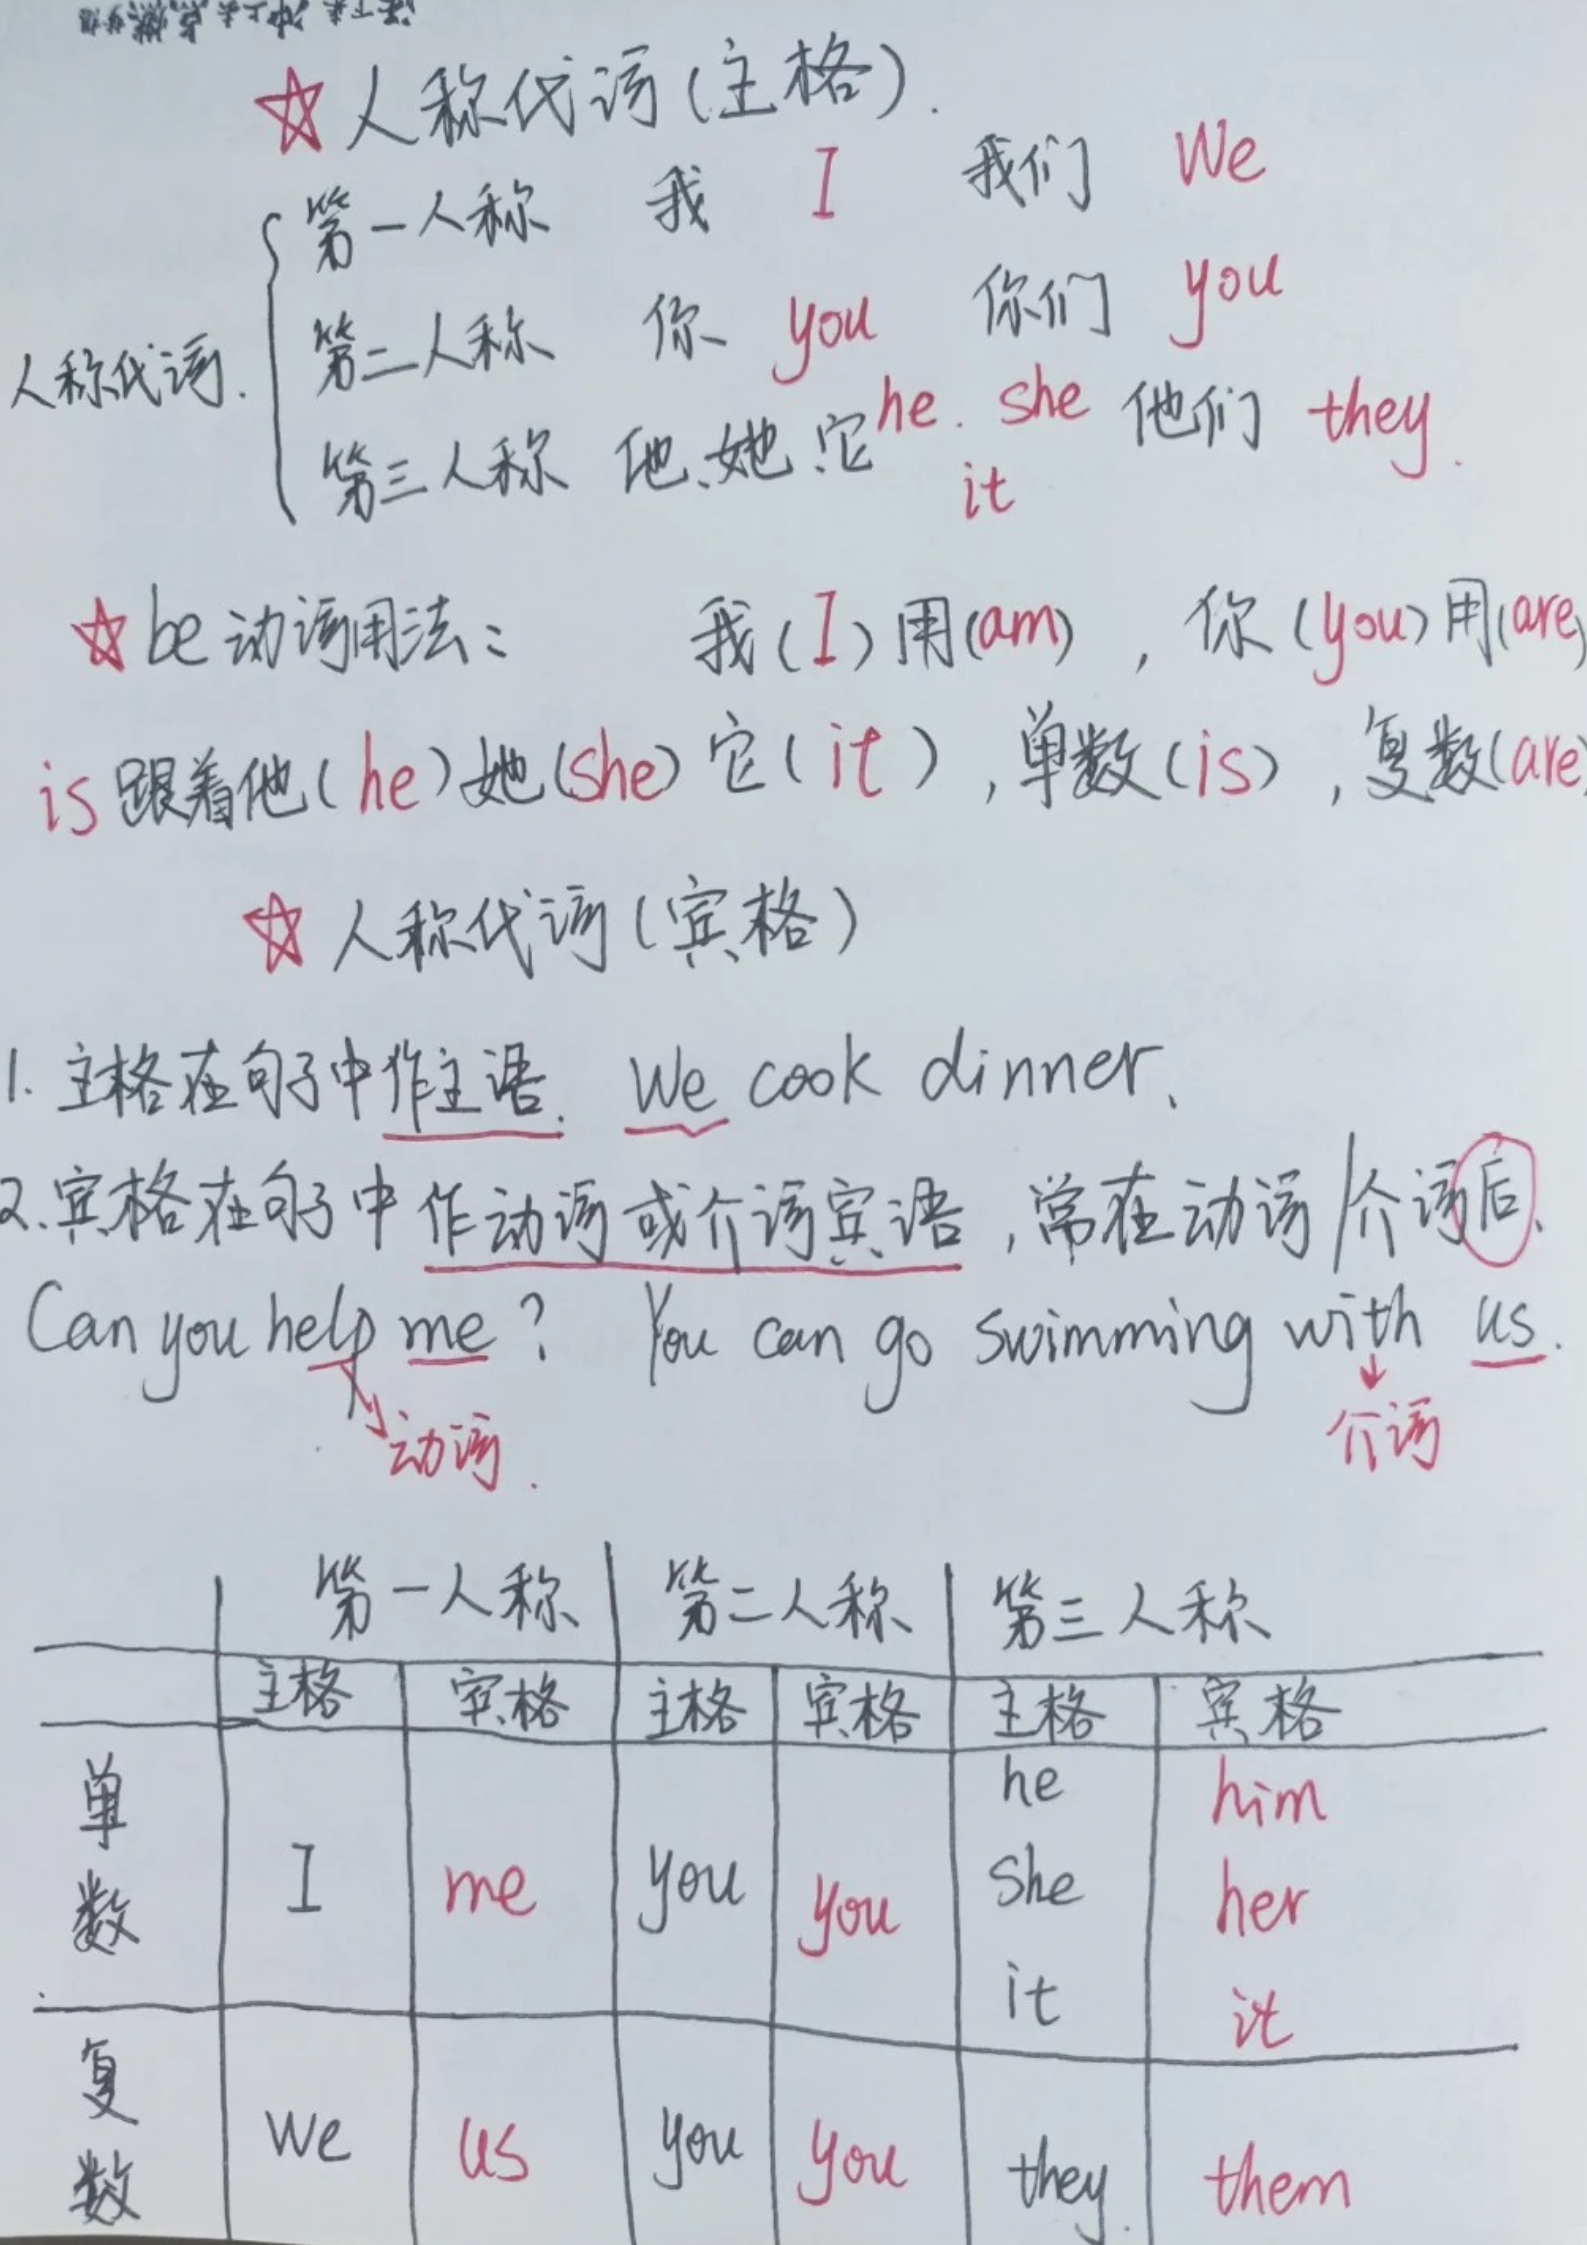 ☆人称代词(主格).
第一人称 我 I 我们 We
人称代词. 第二人称 你 you 你们 you
第三人称 他、她、它 he. she it 他们 they.
☆be动词用法: 我(I)用(am), 你(you)用(are)
is跟着他(he)她(she)它(it), 单数(is), 复数(are)
☆人称代词(宾格)
1. 主格在句子中作主语. We cook dinner.
2. 宾格在句子中作动词或介词宾语, 常在动词/介词后.
Can you help me? You can go swimming with us.
动词. 介词
第一人称 第二人称 第三人称
主格 宾格 主格 宾格 主格 宾格
单数 I me you you he him
she her
it it
复数 We us you you they. them